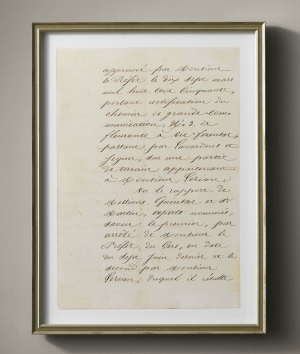 approuvé par Monsieur
le Préfet le dix sept mars
mil huit cent cinquante,
portant rectification du
chemin de grande com-
munication, N.º 3. de
fleurance à Vic Fezensac,
passant par Lavardens et
Jegun, sur une partie
de terrain appartenant
à Monsieur
Vu le rapport de
Messieurs et St
Martin, experts nommés,
savoir le premier, par
arrêté de Monsieur le
Préfet du Gers, en date
du sept Juin dernier et le
second par Monsieur
duquel il résulte